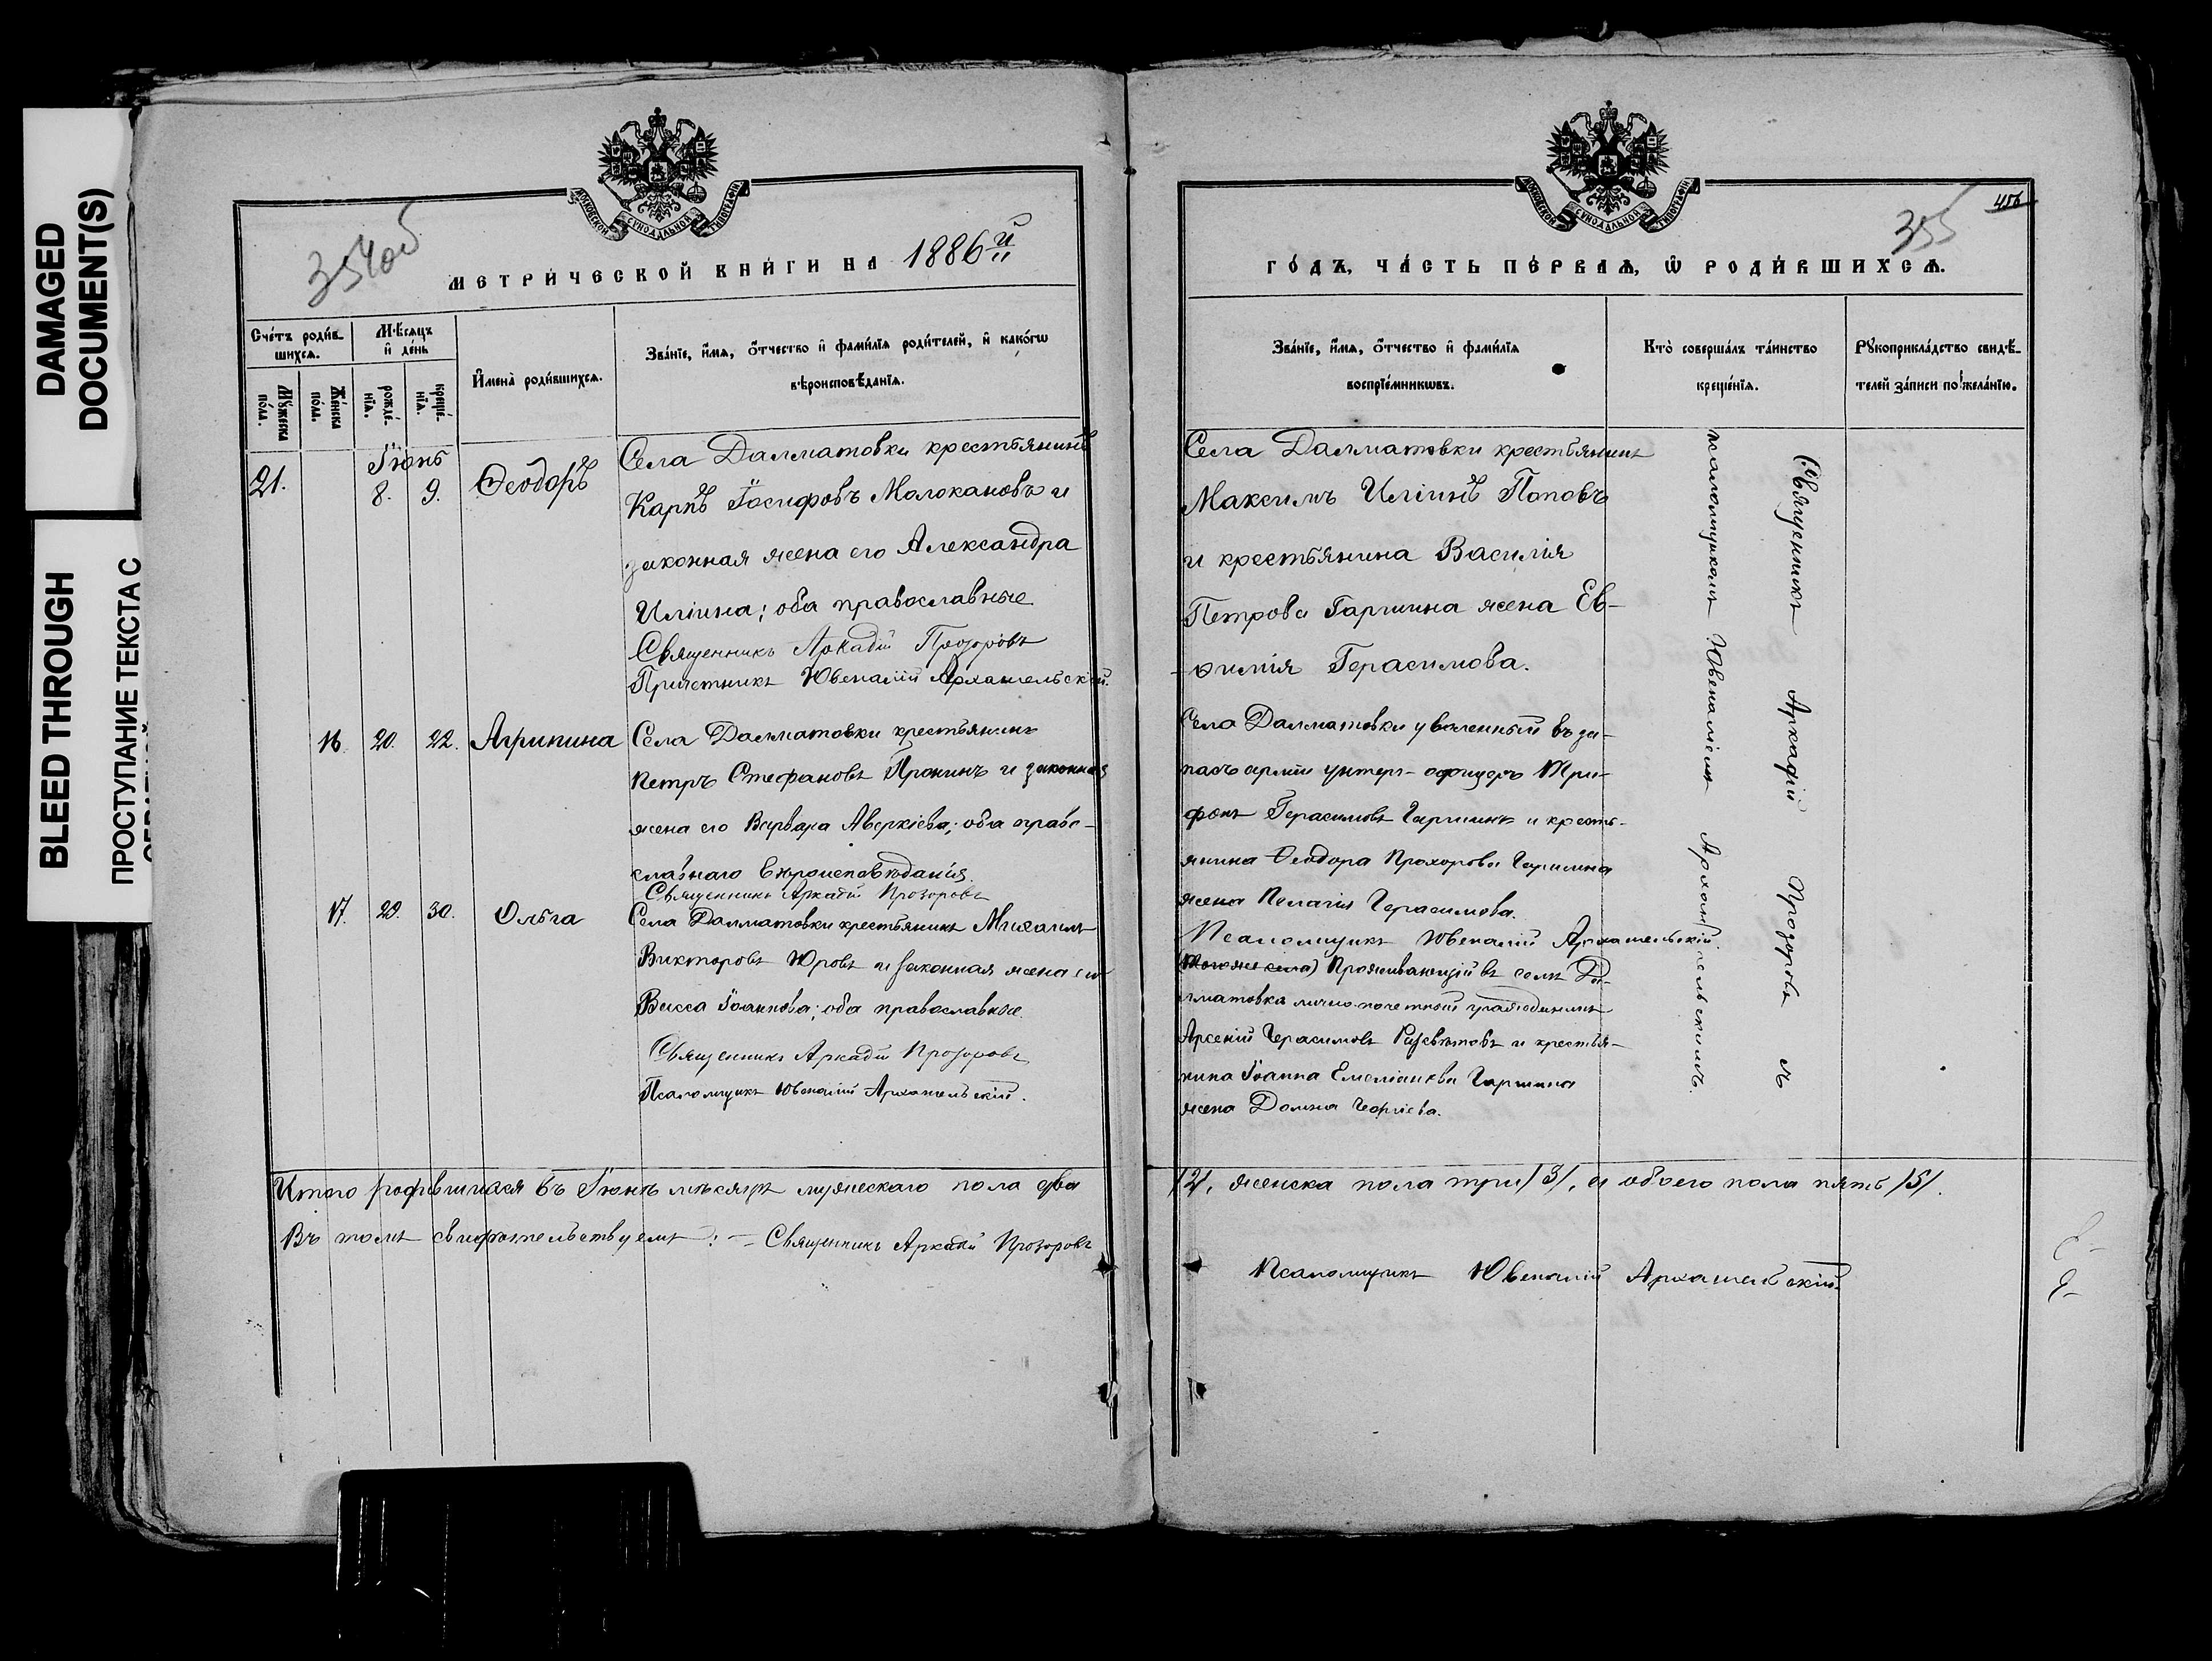 DAMAGED
DOCUMENT(S)
BLEED THROUGH
ПРОСТУПАНИЕ ТЕКСТА С
354об
МОСКОВСКОЙ СУНОДАЛЬНОЙ ТИПОГРАФІИ
МЕТРИ́ЧЕСКОЙ КНИ́ГИ НА 1886й
Сче́тъ роди́в-
шихсѧ.
Мѣ́сѧцъ
и҆ де́нь
Мꙋ́жеска
по́ла.
Же́нска
по́ла.
рожде́-
нїѧ.
креще́-
нїѧ.
И҆мена̀ роди́вшихсѧ.
Зва́нїе, и҆́мѧ, ѻ҆́тчество и҆ фами́лїѧ роди́телей, и҆ како́гѡ
вѣроисповѣ́данїѧ.
Іюнь
21. 8. 9. Ѳеодоръ
Села Далматовки крестьянинъ
Карпъ Іосифовъ Малокановъ и
законная жена его Александра
Иліина; оба православные
Священникъ Аркадій Прозоровъ
Причетникъ Ювеналій Архангельскій.
16. 20. 22. Агрипина
Села Далматовки крестьянинъ
Петръ Стефановъ Пронинъ и законная
жена его Варвара Аверкіева; оба право-
славнаго вѣроисповѣданія.
Священникъ Аркадій Прозоровъ
17. 29. 30. Ольга
Села Далматовки крестьянинъ Михаилъ
Викторовъ Юровъ и законная жена его
Васса Іоаннова; оба православные.
Священникъ Аркадій Прозоровъ
Псаломщикъ Ювеналій Архангельскій.
Итого родившихся въ Іюнѣ мѣсяцѣ мужескаго пола два
Въ томъ свидѣтельствуемъ: – Священникъ Аркадій Прозоровъ
МОСКОВСКОЙ СУНОДАЛЬНОЙ ТИПОГРАФІИ
355
456
ГО́ДЪ, ЧА́СТЬ ПЕ́РВАѦ, Ѡ҆ РОДИ́ВШИХСѦ.
Зва́нїе, и҆́мѧ, ѻ҆́тчество и҆ фами́лїѧ
воспрїе́мникѡвъ.
Кто̀ соверша́лъ та́инство
креще́нїѧ.
Рꙋкоприкла́дство свидѣ́-
телей за́писи по жела́нїю.
Села Далматовки крестьянинъ
Максимъ Иліинъ Поповъ
и крестьянина Василія
Петрова Гаршина жена Ев-
-ѳимія Герасимова.
Села Далматовки уволенный въ за-
пасъ арміи унтеръ-офицеръ Три-
фонъ Герасимовъ Гаршинъ и кресть-
янина Ѳеодора Прохорова Гаршина
жена Пелагія Герасимова.
Псаломщикъ Ювеналій Архангельскій.
Проживающій въ селѣ Да-
лматовка лично-почетный гражданинъ
Арсеній Герасимовъ Разсвѣтовъ и крестья-
нина Іоанна Емеліанова Гаршина
жена Домна Георгіева.
Священникъ Аркадій Прозоровъ съ
псаломщикомъ Ювеналіемъ Архангельскимъ.
/2/, женска пола три /3/, а обоего пола пять /5/.
Псаломщикъ Ювеналій Архангельскій.